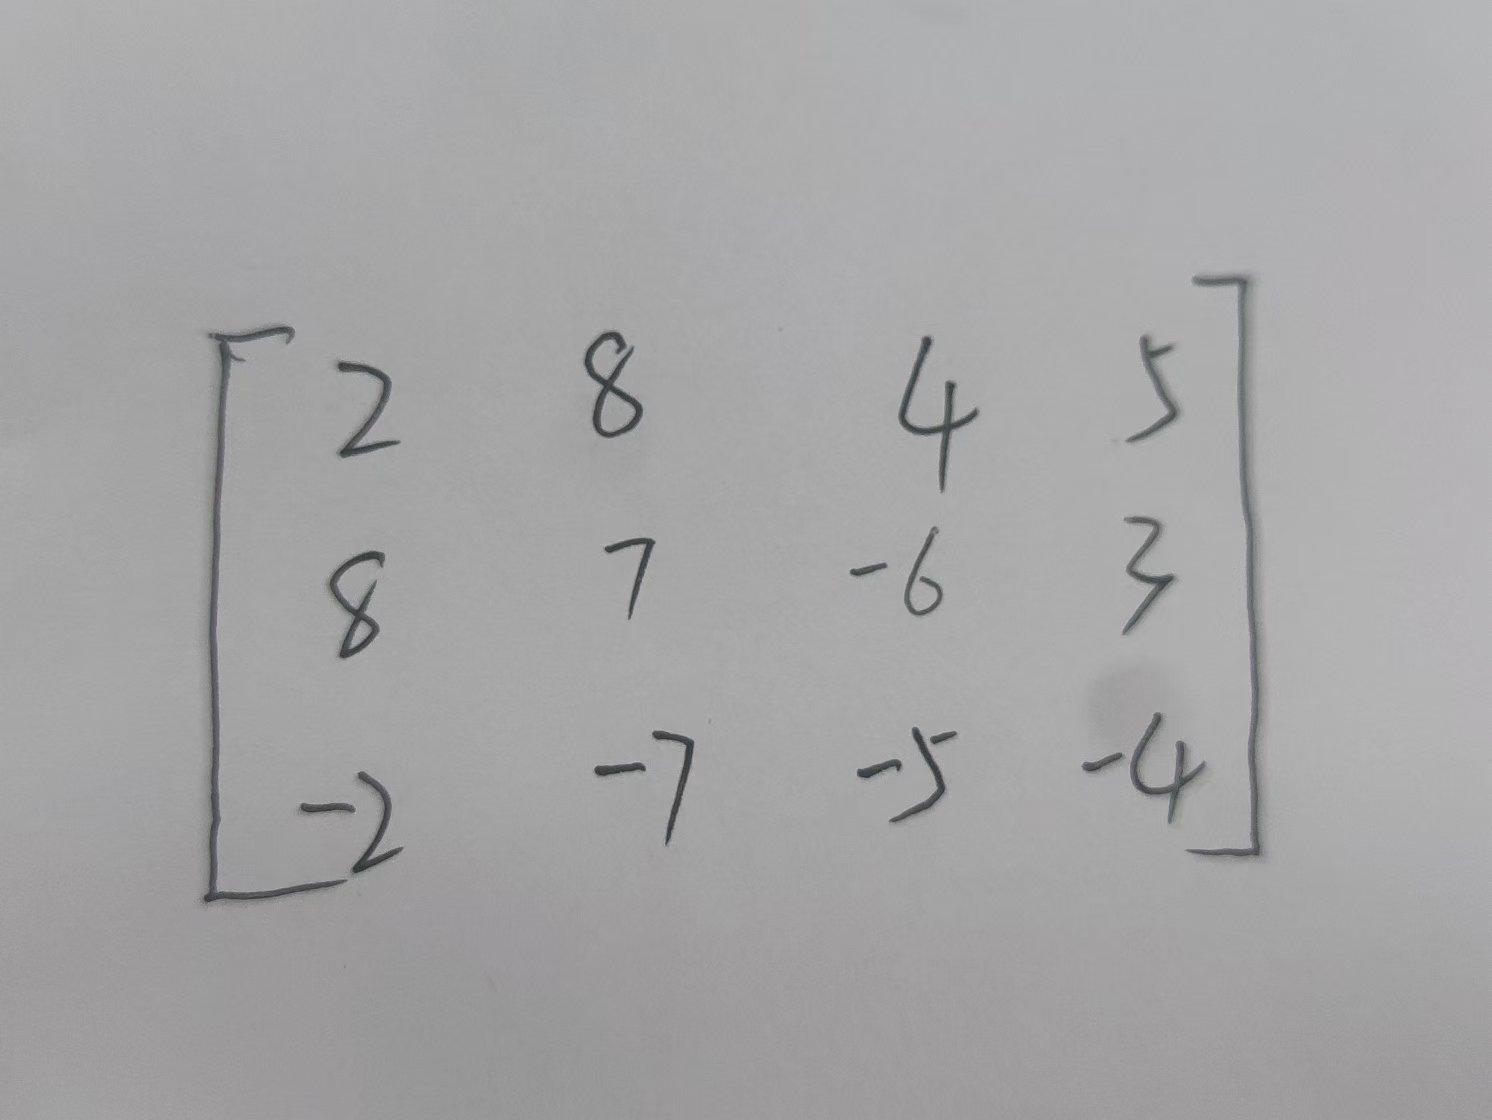 2 8 4 5
8 7 -6 3
-2 -7 -5 -4